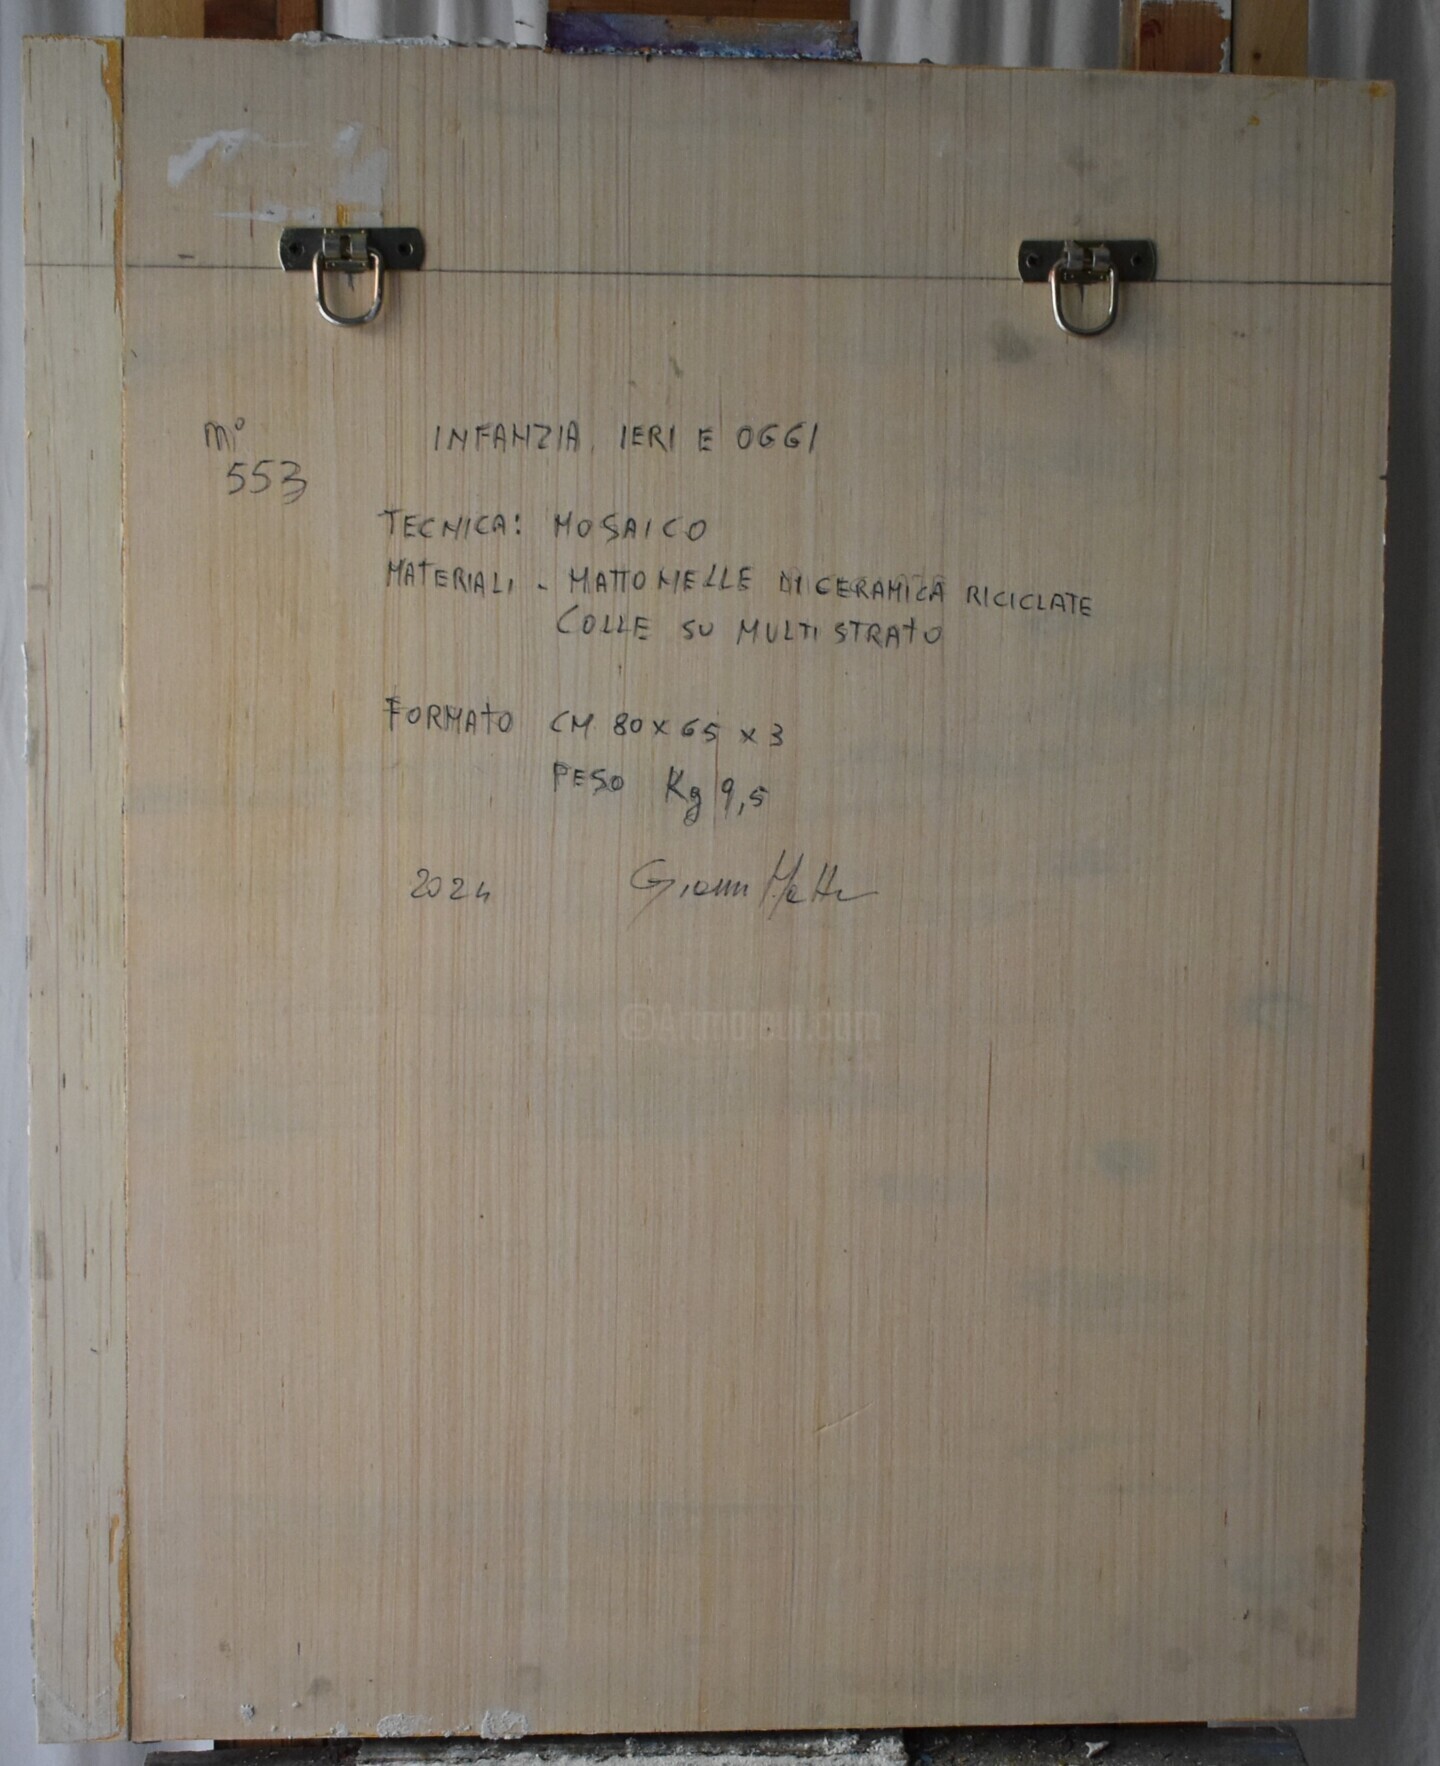 n° INFANZIA, IERI E OGGI
553
TECNICA: MOSAICO
MATERIALI - MATTONELLE DI CERAMICA RICICLATE
COLLE SU MULTISTRATO
FORMATO CM 80 x 65 x 3
PESO Kg 9,5
2024 Gianni Mattu
©Artmajeur.com